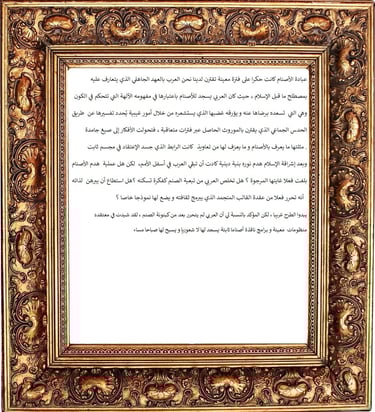 عبادة الأصنام كانت حكرا على فترة معينة تقترن لدينا نحن العرب بالعهد الجاهلي الذي يتعارف عليه
بمصطلح ما قبل الإسلام ، حيث كان العربي يسجد للأصنام باعتبارها في مفهومه الآلهة التي تتحكم في الكون
وهي التي تسعده برضاها عنه و يؤرقه غضبها الذي يستشعره من خلال أمور غيبية يُحدد تفسيرها عن طريق
الحدس الجماعي الذي يقترن بالموروث الحاصل عبر فترات متعاقبة ، فتحولت الأفكار إلى صيغ جامدة
، مثلتها ما يعرف بالأصنام و ما يعرف لها من تعاويذ كانت الرابط الذي جسد الإعتقاد في مجسم ثابت
وبعد إشراقة الإسلام هدم توردة بنية دينية كادت أن تبقي العرب في أسفل الأمم، لكن هل عملية هدم الأصنام
بلغت فعلا غايتها المرجوة ؟ هل تخلص العربي من تبعية الصنم كفكرة تسكنه ؟هل استطاع أن يبرهن لذاته
أنه تحرر فعلا من عقدة القالب المتجمد الذي يبرمج ثقافته و يضع لها نموذجا خاصا ؟
يبدوا الطرح غريبا ، لكن المؤكد بالنسبة لي أن العربي لم يتحرر بعد من كينونة الصنم ، لقد شيدت في معتقده
منظومات معينة و برامج نافذة أصناما ثابتة يسجد لها لا شعوريا و يسبح لها صباحا مساء